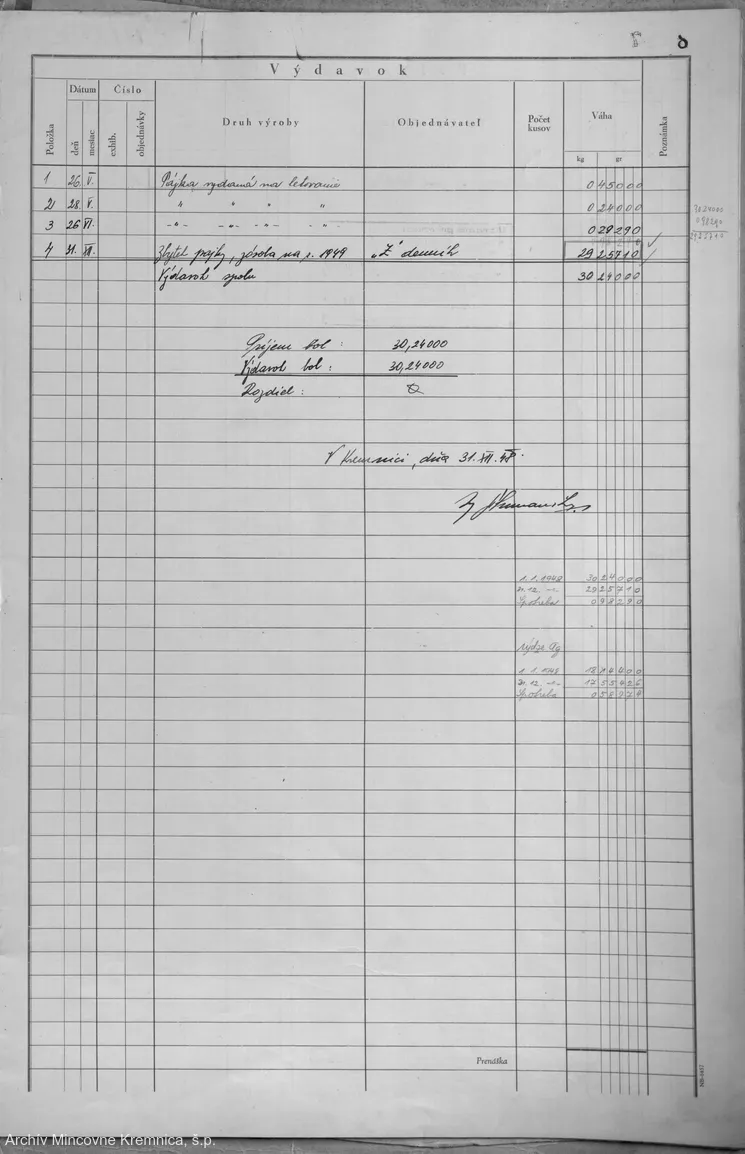 Výdavok
Položka Dátum deň mesiac Číslo exhib. objednávky Druh výroby Objednávateľ Počet kusov Váha kg gr Poznámka
1 26. V. Pájka vydaná na letovanie 0 45000
2 28. V. " " " " 0 24000
3 26 VI. -"- -"- -"- -"- 0 29290
4 31. XII. Zbytok pájky, zásoba na r. 1949 "Z" denník 29 25710
Výdavok spolu 30 24000
3024000
098290
2925710
Príjem bol : 30,24000
Výdavok bol : 30,24000
Rozdiel :
V Kremnici, dňa 31. XII. 48.
1.1.1948 30 24000
31.12 -"- 29 25710
Spotreba 0 98290
rýdze Ag
1.1.1948 18 14400
31.12 -"- 17 55426
Spotreba 0 58974
Prenáška
Archív Mincovne Kremnica, š.p.